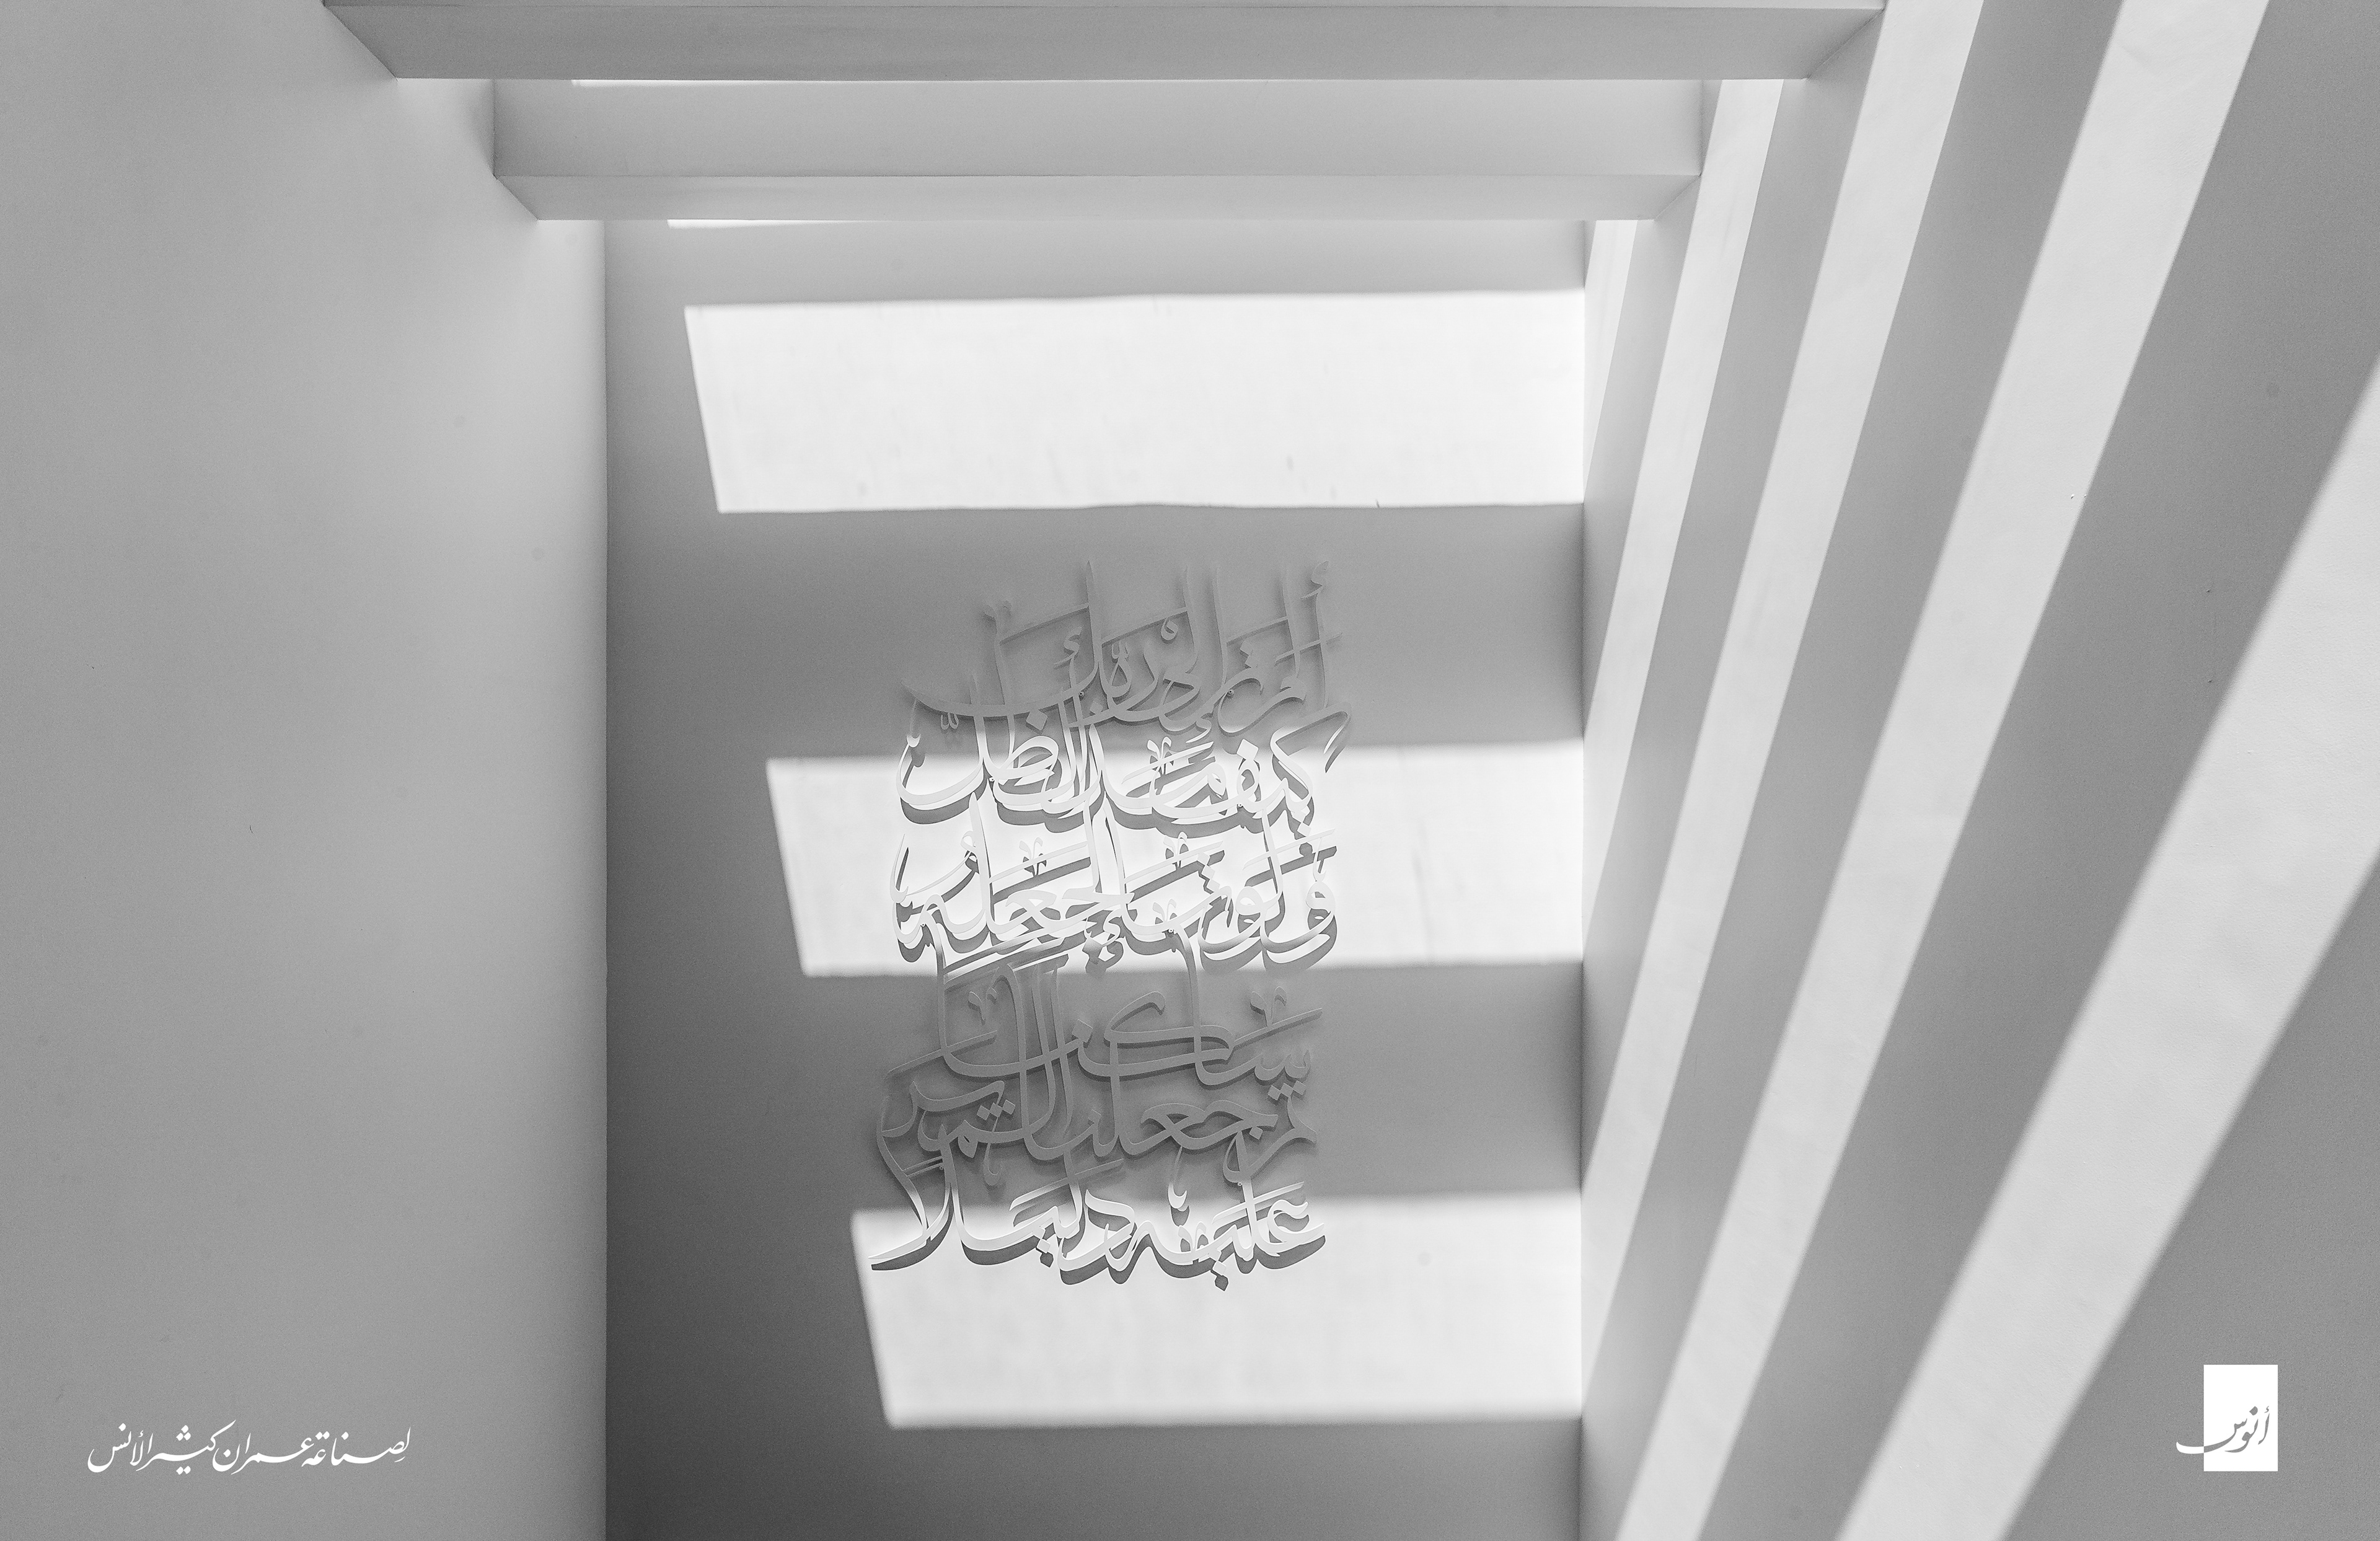 ألم تر إلى ربك
كيف مد الظل
ولو شاء لجعله
ساكنا ثم
جعلنا الشمس
عليه دليلا
لصناعة عمران كثير الأنس
أنوس